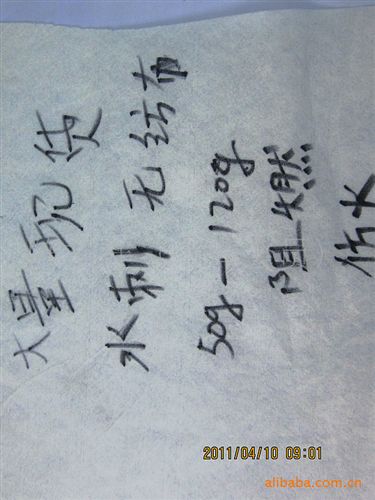 大量现货
水刺无纺布
50g—120g
阻燃
2011/04/10 09:01
alibaba.com.cn